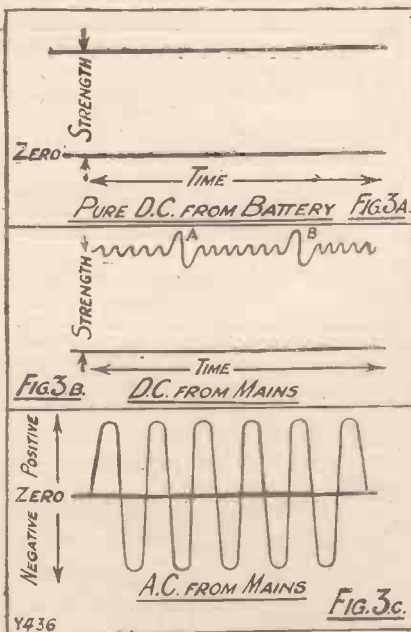 STRENGTH
ZERO
TIME
PURE D.C. FROM BATTERY FIG.3A.
A B
STRENGTH
TIME
FIG.3B. D.C. FROM MAINS
NEGATIVE POSITIVE
ZERO
A.C. FROM MAINS
FIG.3.C.
Y436